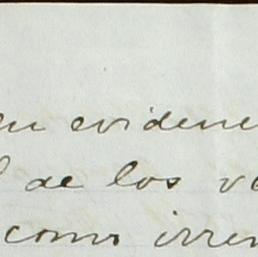 en evidenc
l de los va
como irrem